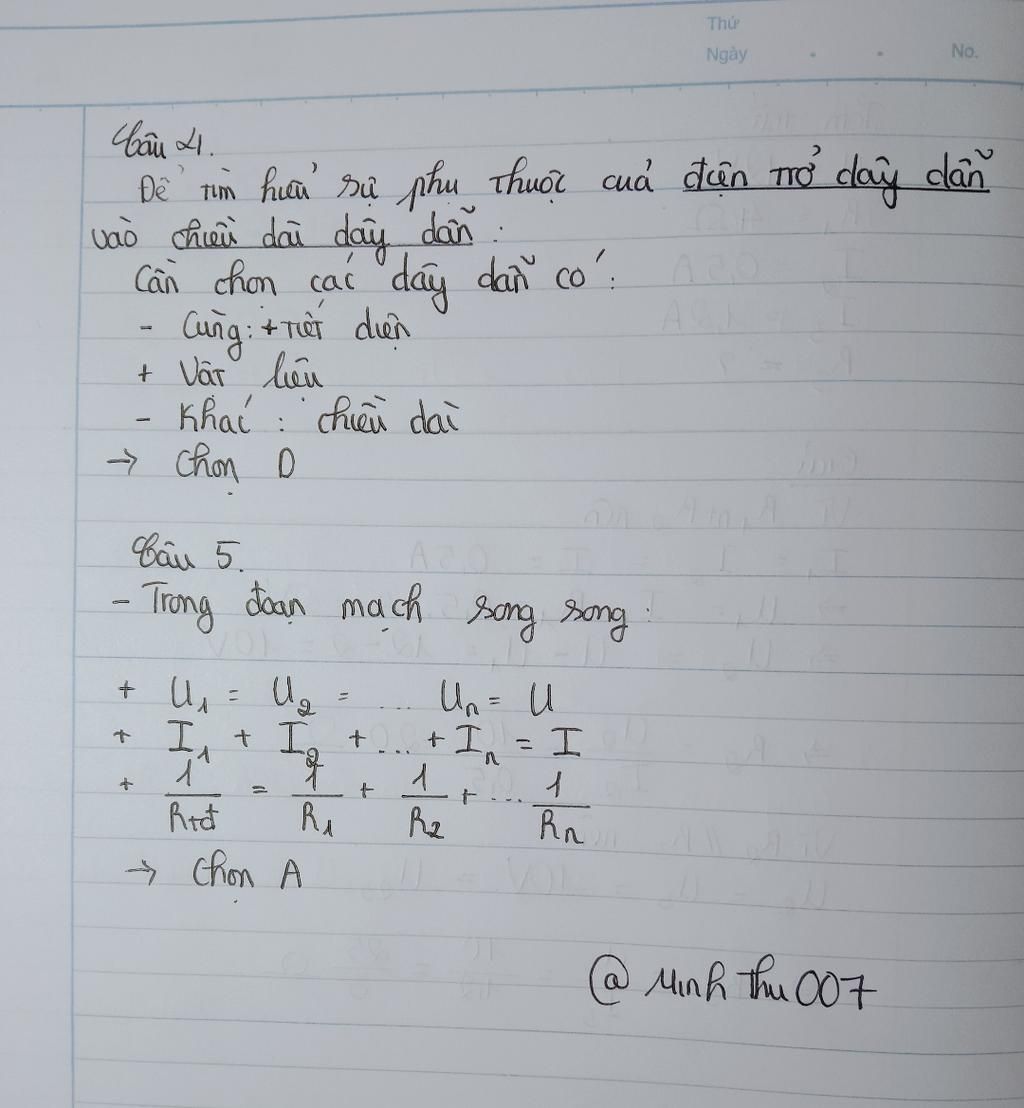 Thứ
Ngày . . No.
Câu 4.
Để tìm hiểu sự phụ thuộc của điện trở dây dẫn
vào chiều dài dây dẫn :
Cần chọn các dây dẫn có :
- Cùng : + tiết diện
+ Vật liệu
- Khác : chiều dài
→ Chọn D
Câu 5.
- Trong đoạn mạch song song :
+ U₁ = U₂ = ... Uₙ = U
+ I₁ + I₂ + ... + Iₙ = I
+ 1/Rtđ = 1/R₁ + 1/R₂ + ... 1/Rₙ
→ Chọn A
@ Minh Thu 007